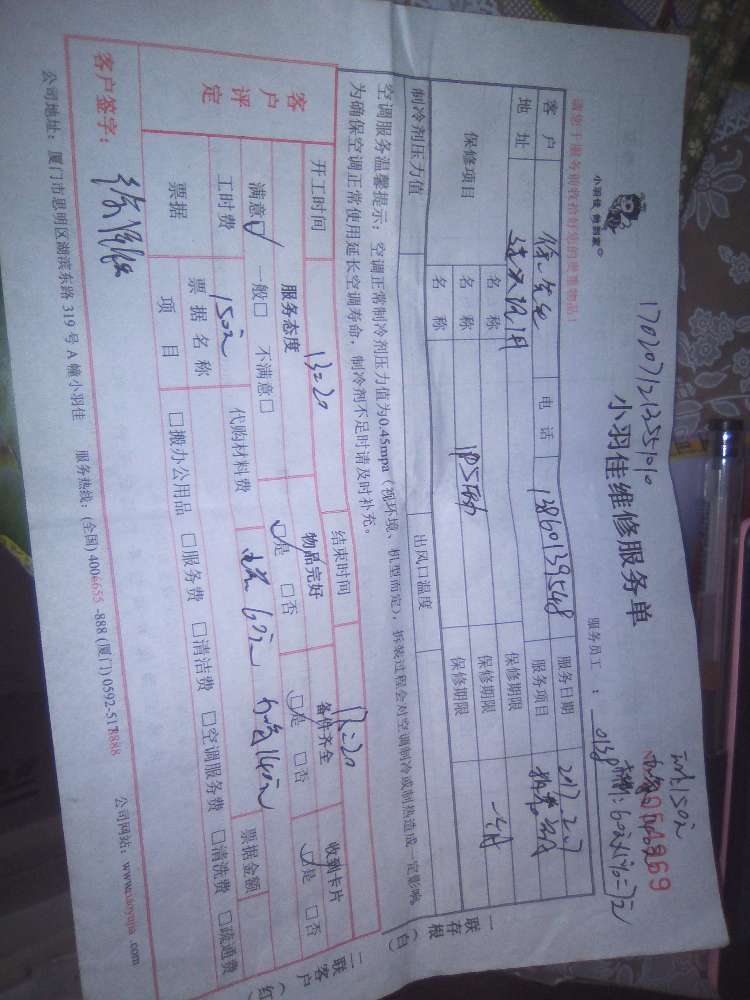 小羽佳 创到家
1702071213551010
小羽佳维修服务单
服务员工 : 0138
请您于服务前收拾好您的贵重物品！
客户 徐先生 电话 13860139548 服务日期 2017.2.7
地址 服务项目
保修项目 名称 保修期限
名称 保修期限
名称 保修期限
制冷剂压力值 出风口温度
空调服务温馨提示：空调正常制冷剂压力值为0.45mpa（视环境、机型而定），拆装过程会对空调制冷或制热造成一定影响。
为确保空调正常使用延长空调寿命，制冷剂不足时请及时补充。
一联存根（白）
二联客户（红
客户评定
开工时间 13=20 结束时间 17=20
服务态度 物品完好 备件齐全 收到卡片
满意☑ 一般□ 不满意□ ☑是 □否 ☑是 □否 ☑是 □否
工时费 150元 代购材料费 60元 140元
票据 票据名称 票据金额
项目 □搬办公用品 □服务费 □清洁费 □空调服务费 □清洗费 □疏通费
客户签字：
公司地址：厦门市思明区湖滨东路 319 号 A 幢小羽佳 服务热线：(全国) 4006655-888 (厦门) 0592-5178888 公司网站：www.xiaoyujia.com